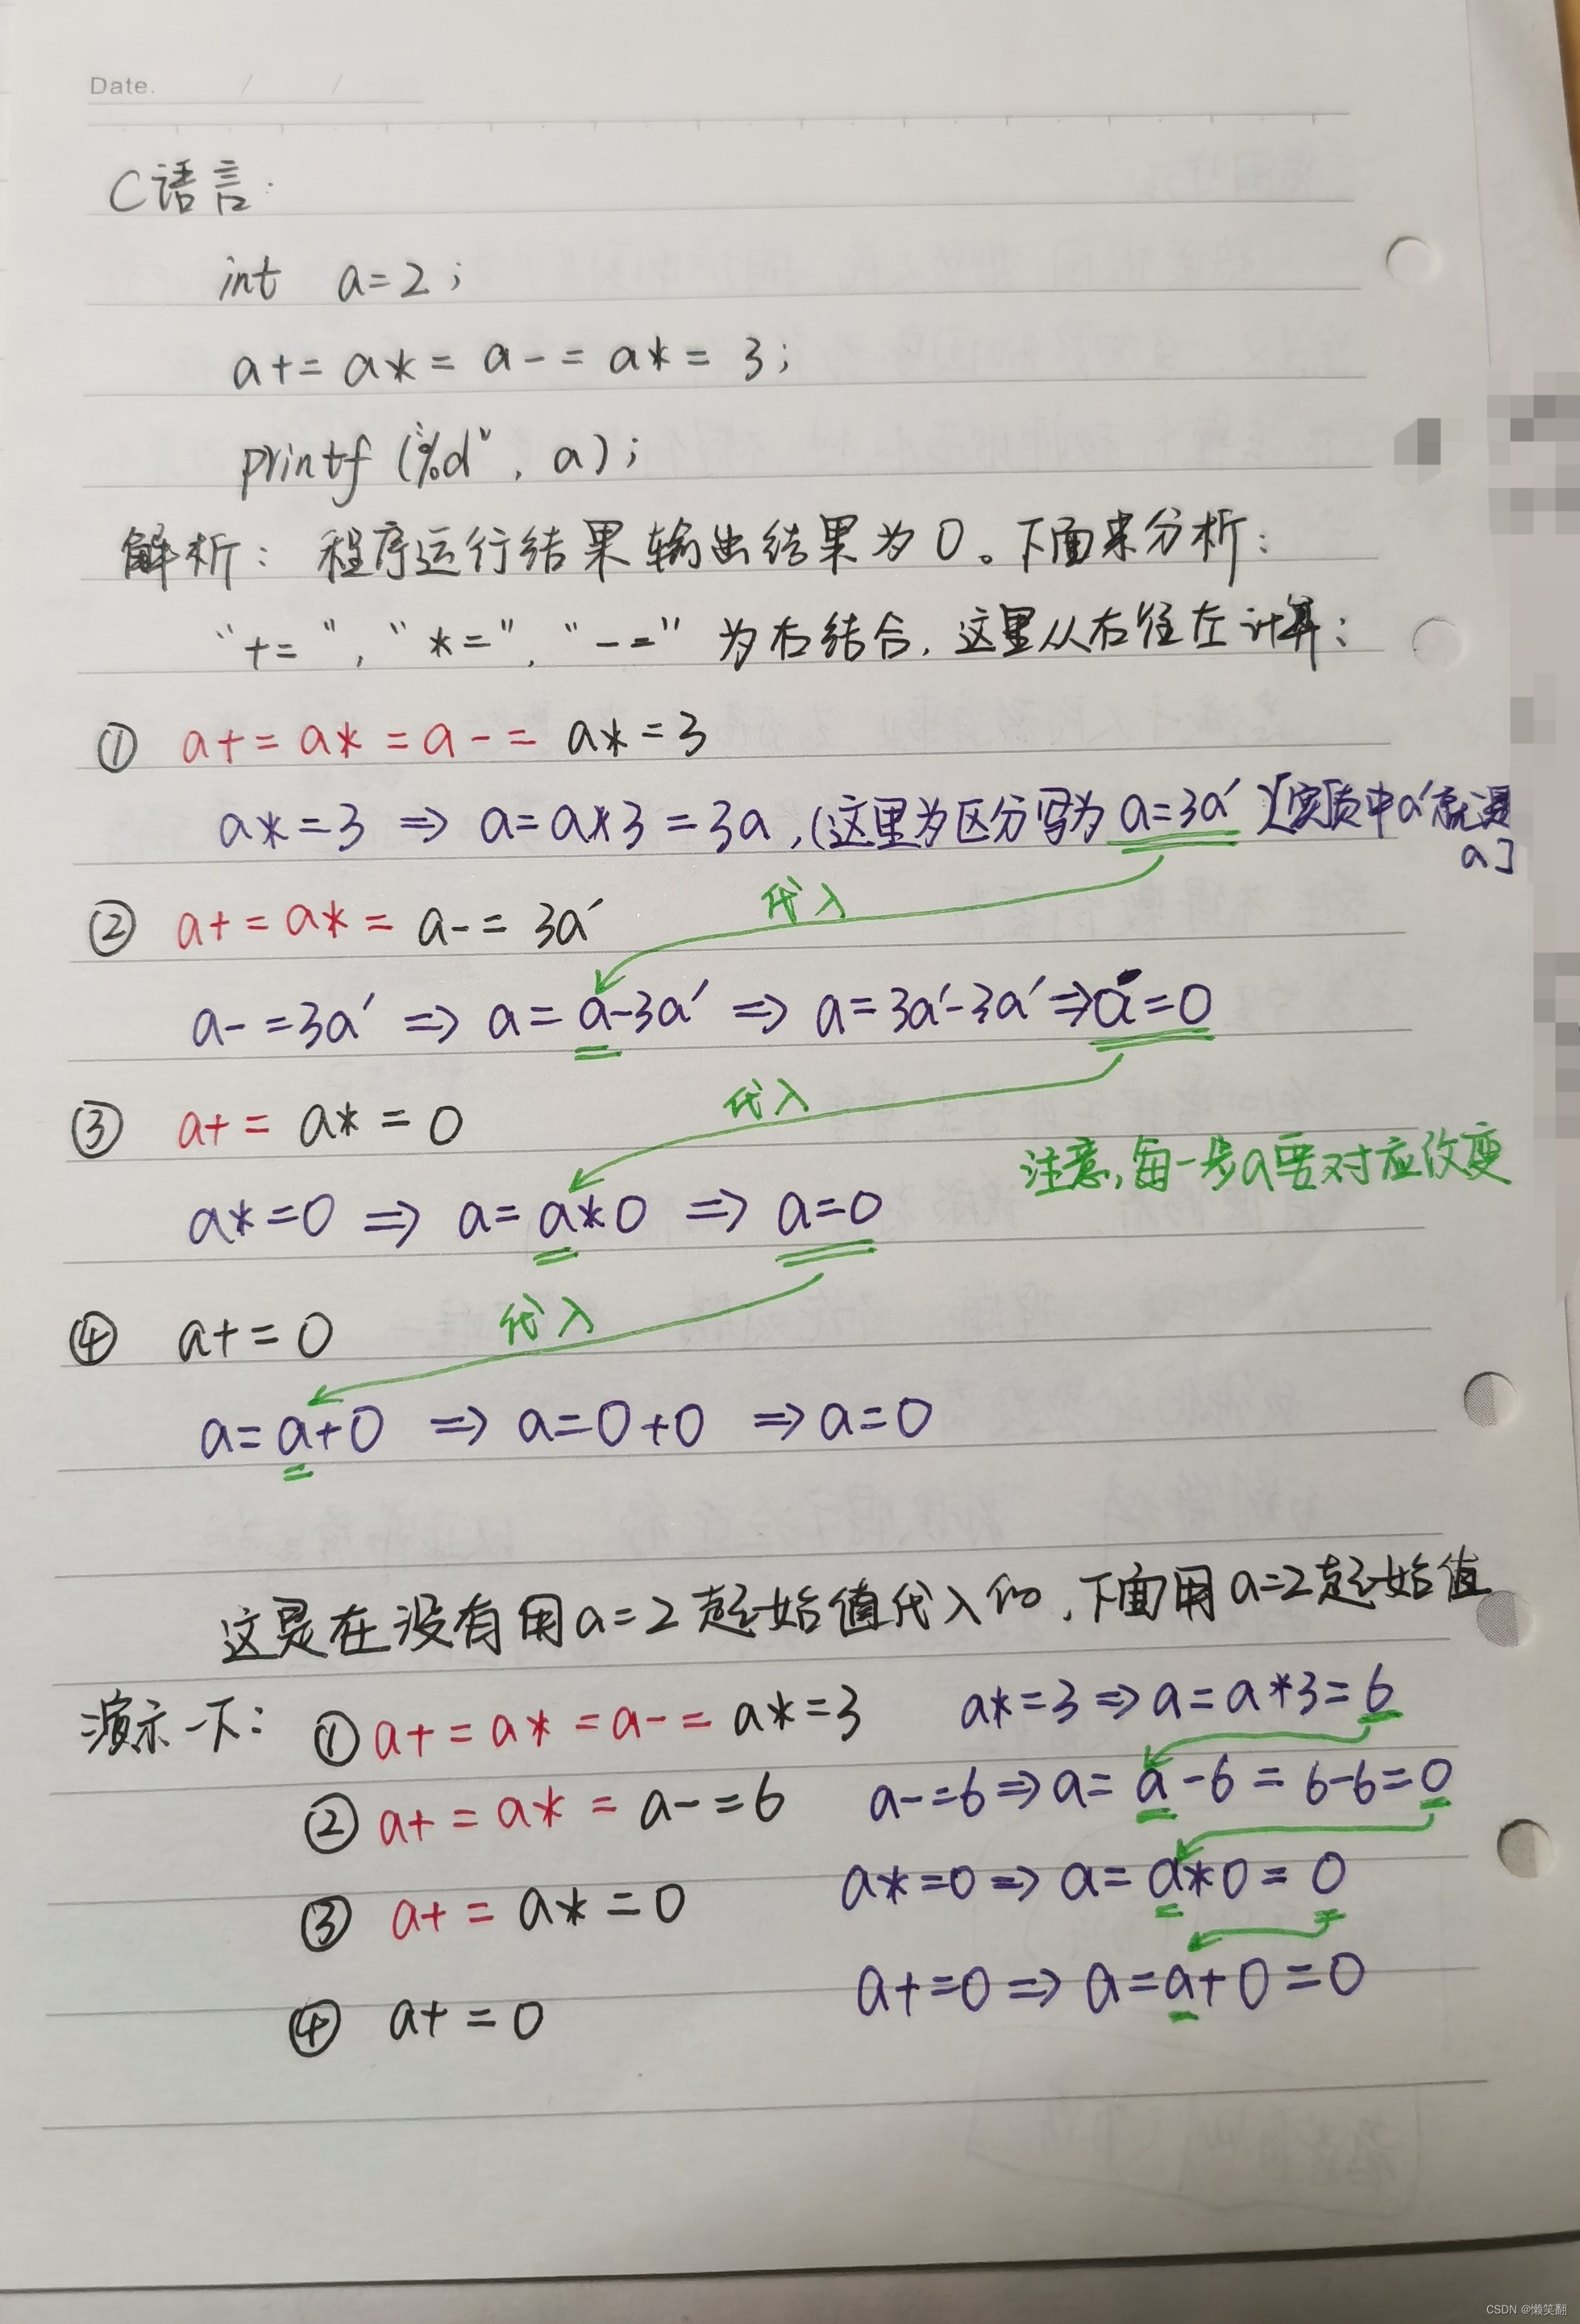 Date. / /
C语言:
int a=2;
a+= a*= a-= a*= 3;
printf("%d", a);
解析: 程序运行结果输出结果为0。下面来分析:
"+=", "*=", "-=" 为右结合, 这里从右往左计算:
① a+= a*= a-= a*=3
a*=3 => a=a*3=3a, (这里为区分写为 a=3a′)[实质中a′就是
a]
代入
② a+= a*= a-= 3a′
a-=3a′ => a=a-3a′ => a=3a′-3a′ => a=0
代入
③ a+= a*=0
注意, 每一步a要对应改变
a*=0 => a=a*0 => a=0
④ a+=0
代入
a=a+0 => a=0+0 => a=0
这是在没有用a=2起始值代入的, 下面用a=2起始值
演示一下: ① a+= a*= a-= a*=3 a*=3 => a=a*3=6
② a+= a*= a-=6 a-=6 => a=a-6=6-6=0
③ a+= a*=0 a*=0 => a=a*0=0
④ a+=0 a+=0 => a=a+0=0
CSDN @懒笑翻